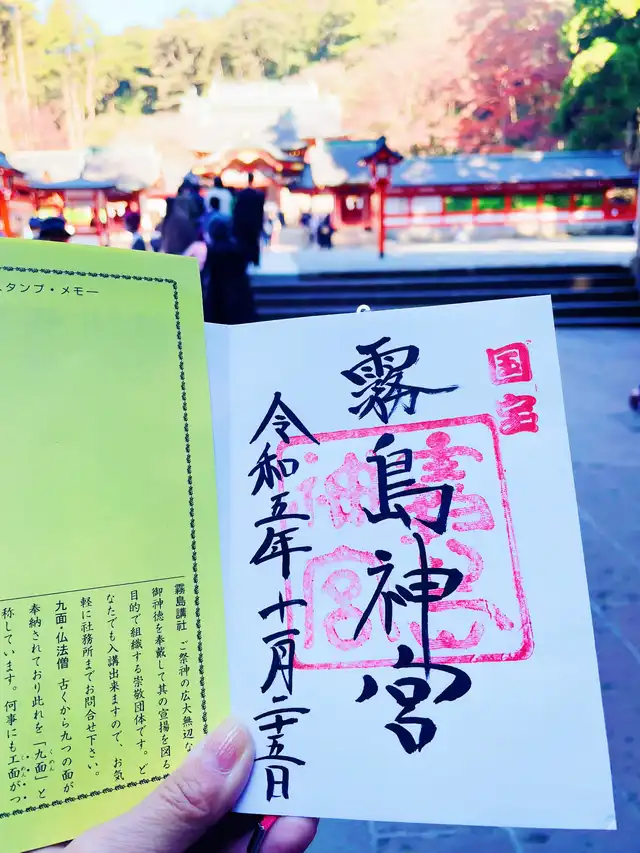 国宝
霧島神宮
令和五年十一月二十五日
霧島神宮
スタンプ・メモー
霧島講社 ご祭神の広大無辺な
御神徳を奉戴して其の宣揚を図る
目的で組織する崇敬団体です。ど
なたでも入講出来ますので、お気
軽に社務所までお問合せ下さい。
九面・仏法僧 古くから九つの面が
奉納されており此れを「九面」と
くめん
称しています。何事にも工面がつ